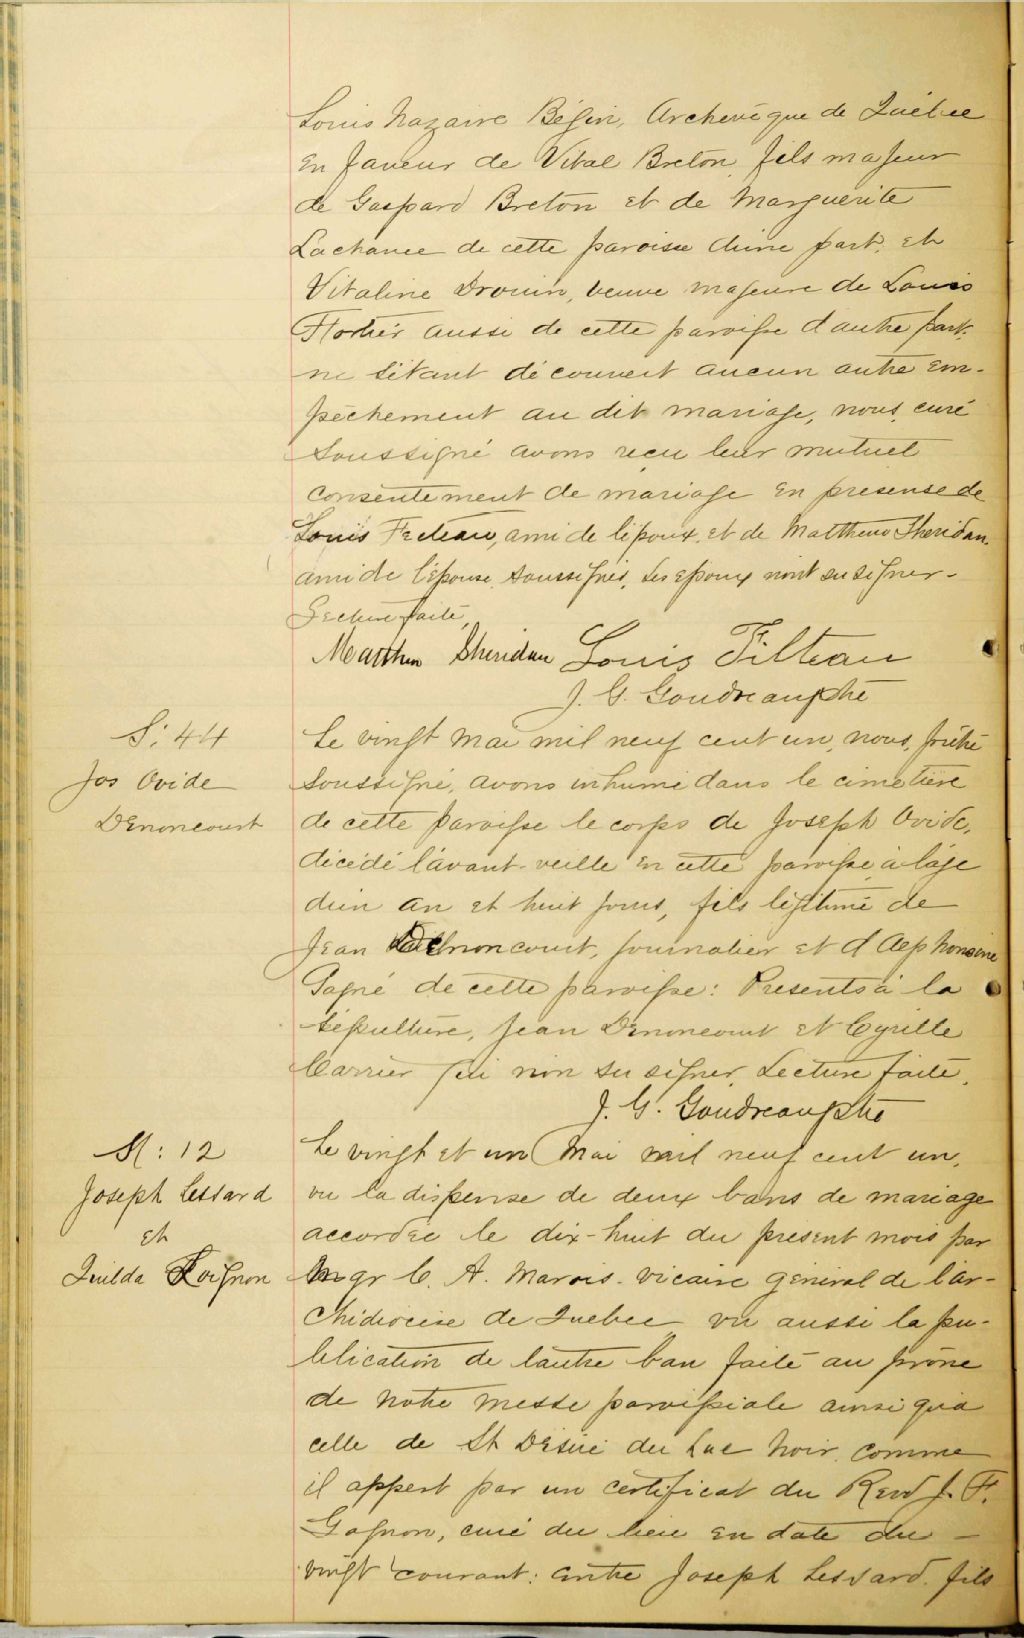 Louis Nazaire Bégin, Archevêque de Québec
en faveur de Vital Breton, fils majeur
de Gaspard Breton et de Marguerite
Lachance de cette paroisse d'une part, et
Vitaline Drouin, veuve majeure de Louis
Fortier aussi de cette paroisse d'autre part;
ne s'étant découvert aucun autre em-
pêchement au dit mariage, nous, curé
soussigné avons reçu leur mutuel
consentement de mariage en présense de
Louis Fecteau, ami de l'époux, et de Matthew Sheridan,
ami de l'épouse, soussignés. Les epoux n'ont su signer-
Lecture faite,
Matthew Sheridan Louis Filteau
J. G. Goudreau ptre
S: 44
Jos Ovide
Denoncourt
Le vingt Mai mil neuf cent un, nous, prêtre
soussigné, avons inhumé dans le cimetière
de cette paroisse le corps de Joseph Ovide,
décédé l'avant-veille en cette paroisse à l'âge
d'un an et huit jours, fils légitime de
Jean Denoncourt, journalier et d'Alphonsine
Gagné de cette paroisse: Présents à la
sépulture, Jean Denoncourt et Cyrille
Carrier qui n'on su signer. Lecture faite.
J. G. Goudreau ptre
M: 12
Joseph Lessard
et
Quilda Poignon
Le vingt et un Mai mil neuf cent un,
vu la dispense de deux bans de mariage
accordée le dix-huit du présent mois par
Mgr C. A. Marois. vicaire général de l'ar-
chidiocèse de Quebec, vu aussi la pu-
blication de l'autre ban faite au prône
de notre messe paroissiale ainsi qu'à
celle de St Désiré du Lac Noir, comme
il appert par un certificat du Revd J. F.
Gagnon, curé du lieu en date du -
vingt courant: entre Joseph Lessard, fils